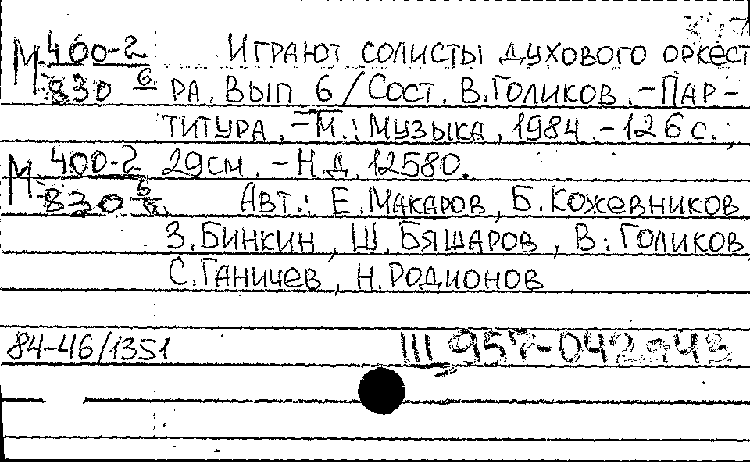 М 400-2 Играют солисты духового оркест
830 6 ра. Вып 6 / Сост. В. Голиков. - Пар-
титура. - М.: Музыка, 1984. - 126 с.;
М 400-2 29 см. - Н.Д. 12580.
830 6 Авт.: Е. Макаров, Б. Кожевников
З. Бинкин, Ш. Бяшаров, В. Голиков,
С. Ганичев, Н. Родионов
84-46/1351 III 957-042